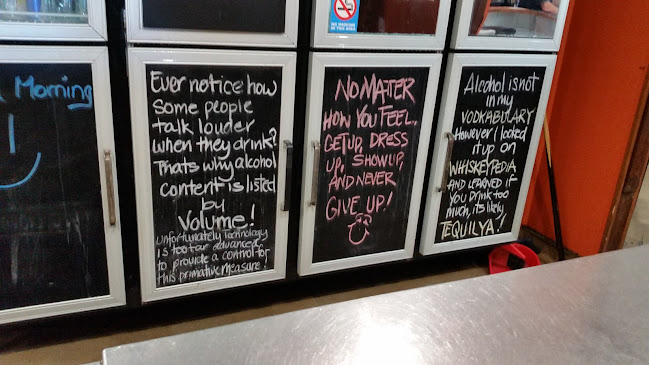 Morning
Ever notice how
some people
talk louder
when they drink?
Thats why alcohol
content is listed
by
Volume!
Unfortunately Technology
is too far advanced
to provide a control for
this primative measure!
NO MATTER
HOW YOU FEEL,
GET UP, DRESS
UP, SHOW UP,
AND NEVER
GIVE UP!
Alcohol is not
in my
VODKABULARY
However I looked
it up on
WHISKEYPEDIA
AND LEARNED IF
YOU DRINK TOO
much, its likely
TEQUILYA!
NO SMOKING